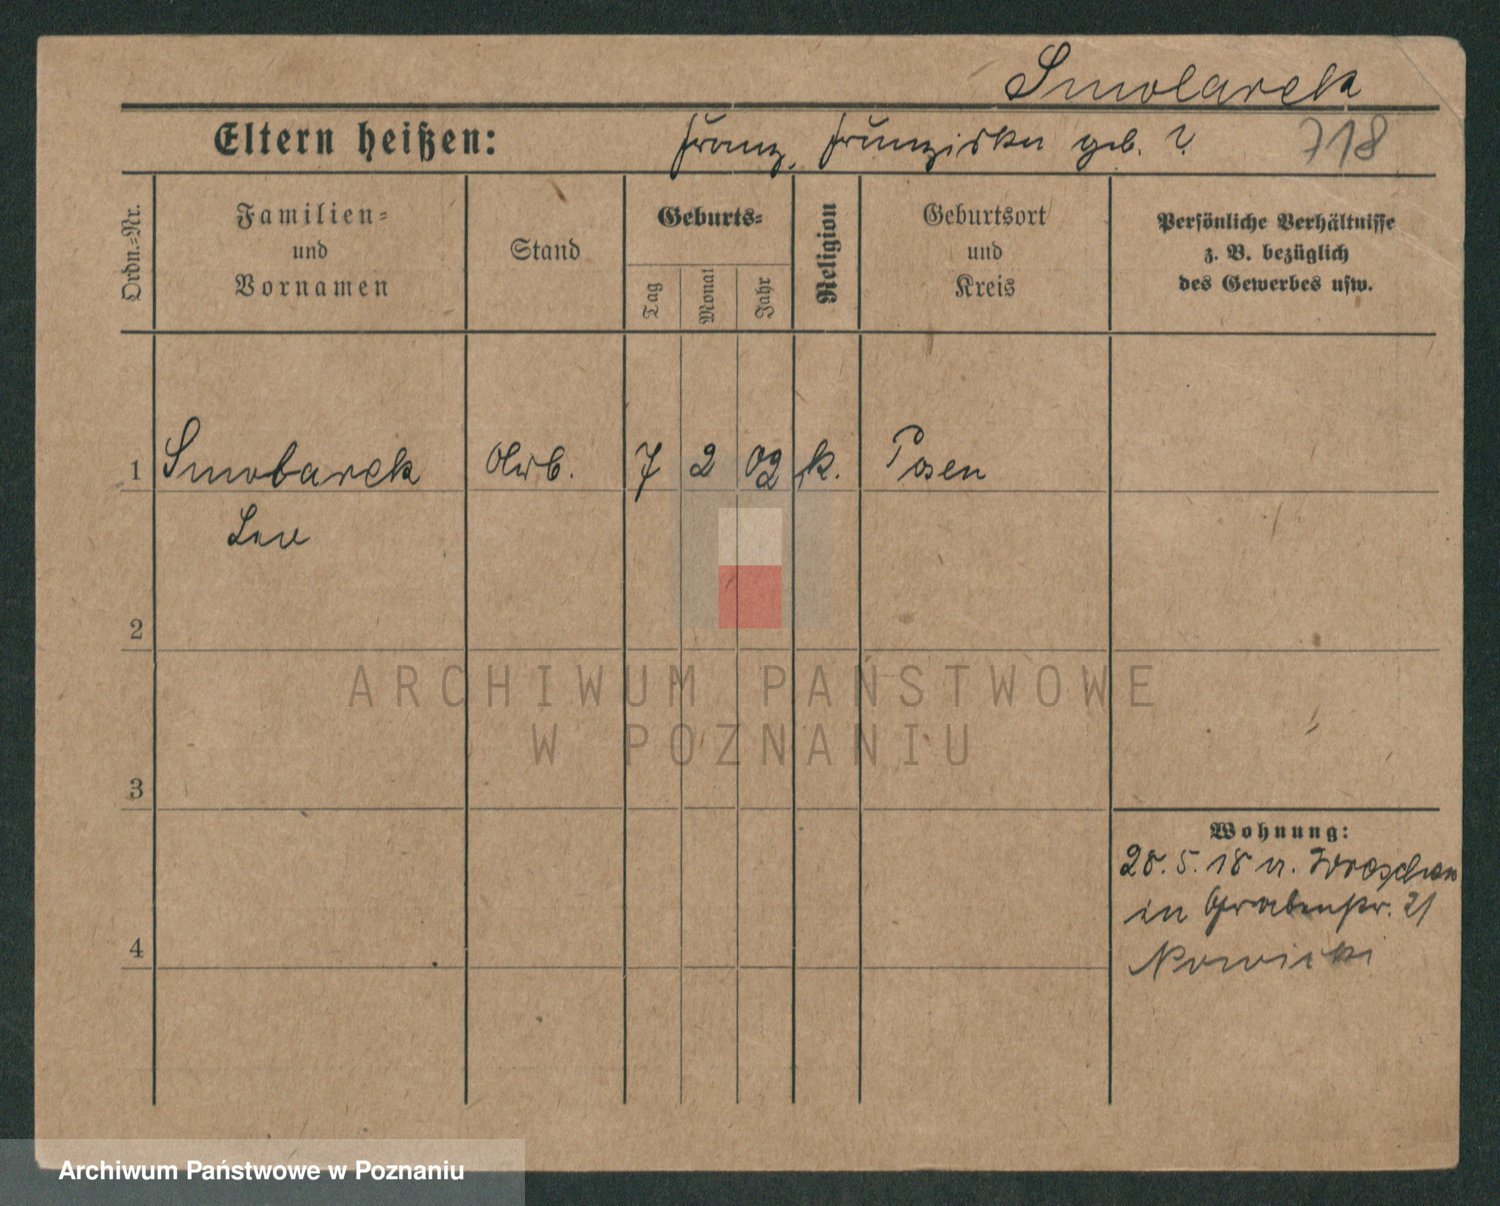 Smolarek
Eltern heißen: Franz, Franziska geb. ?
718
Ordn.=Nr.
Familien=
und
Vornamen
Stand
Geburts=
Tag
Monat
Jahr
Religion
Geburtsort
und
Kreis
Persönliche Verhältnisse
z. B. bezüglich
des Gewerbes usw.
1 Smolarek Arb. 7 2 02 k. Posen
Leo
2
ARCHIWUM PAŃSTWOWE
W POZNANIU
3
Wohnung:
28. 5. 18 v. Wreschen
in Grabenstr. 21
4
Nowicki
Archiwum Państwowe w Poznaniu